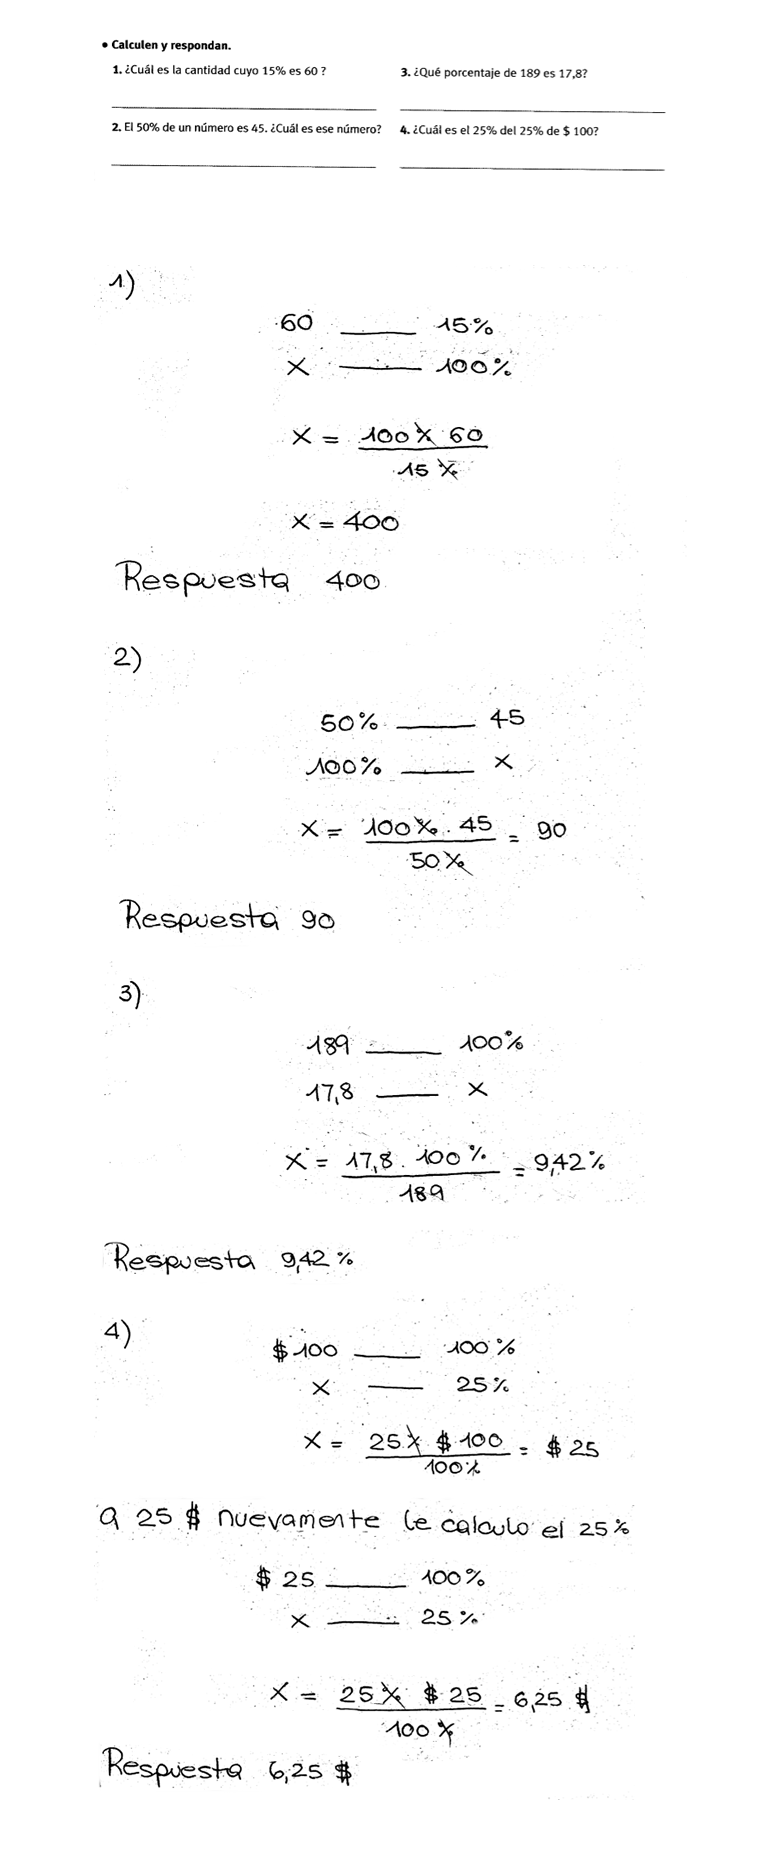 • Calculen y respondan.
1. ¿Cuál es la cantidad cuyo 15% es 60 ?
3. ¿Qué porcentaje de 189 es 17,8?
2. El 50% de un número es 45. ¿Cuál es ese número?
4. ¿Cuál es el 25% del 25% de $ 100?
1)
60 ____ 15%
X ____ 100%
X = 100% 60
15 %
X = 400
Respuesta 400
2)
50% ____ 45
100% ____ X
X = 100% . 45 = 90
50%
Respuesta 90
3)
189 ____ 100%
17,8 ____ X
X = 17,8 . 100 % = 9,42%
189
Respuesta 9,42 %
4)
$ 100 ____ 100%
X ____ 25%
X = 25% $ 100 = $ 25
100%
a 25 $ nuevamente le calculo el 25%
$ 25 ____ 100%
X ____ 25%
X = 25% $ 25 = 6,25 $
100 %
Respuesta 6,25 $